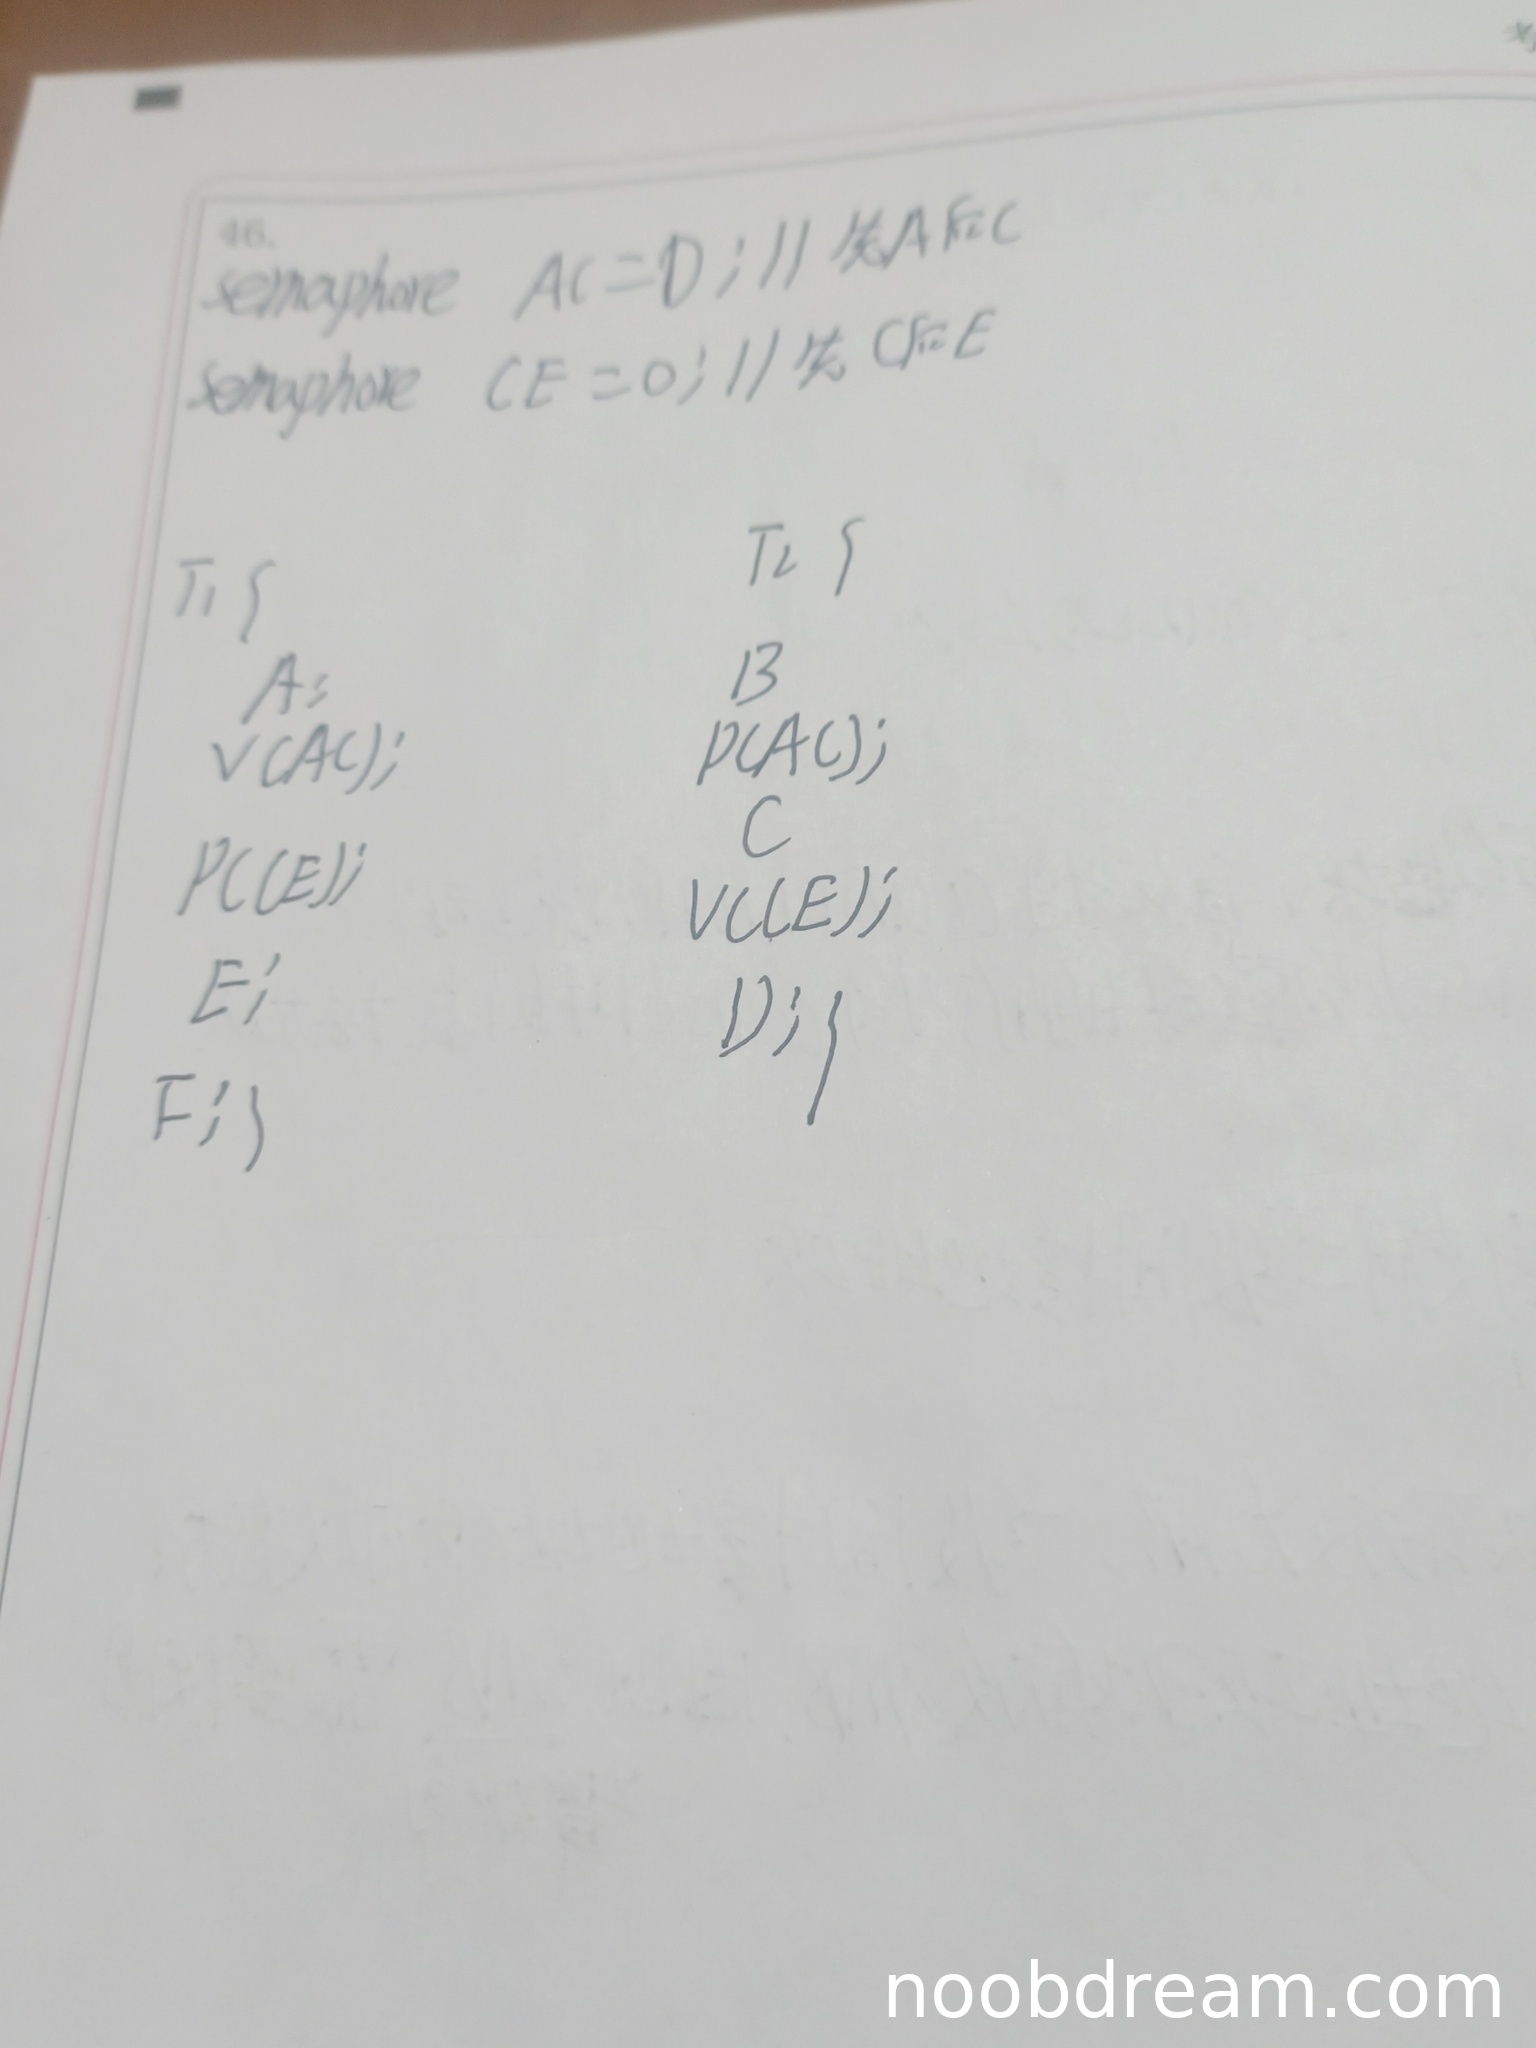 46.
semaphore AC=0;//先A后C
semaphore CE=0;//先C后E
T1{
A;
V(AC);
P(CE);
E;
F;}
T2{
B
P(AC);
C
V(CE);
D;}
noobdream.com